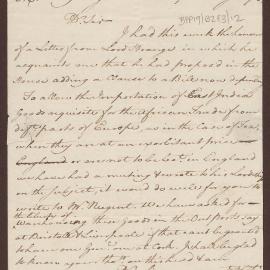 BPP17/0283/12
I had this week the honour
of a Letter from Lord Strange in which he
acquaints me that he had proposed in the
House adding a Clause to a Bill now depending
To allow the Importation of East India
Goods requisite for the African Trade from
diff.t parts of Europe, as in the Case of Tea,
when they are at an exorbitant price
England or are not to be had in England
we have had a meeting & wrote to his Lordship
on the subject, it would do well for you to
write to M.r Nugent. We have asked for
the liberty of
Warehousing these Goods in the Out ports say
at Bristol & Liverpoole if that cant be granted
to have one at Cork. I shall be glad
to know